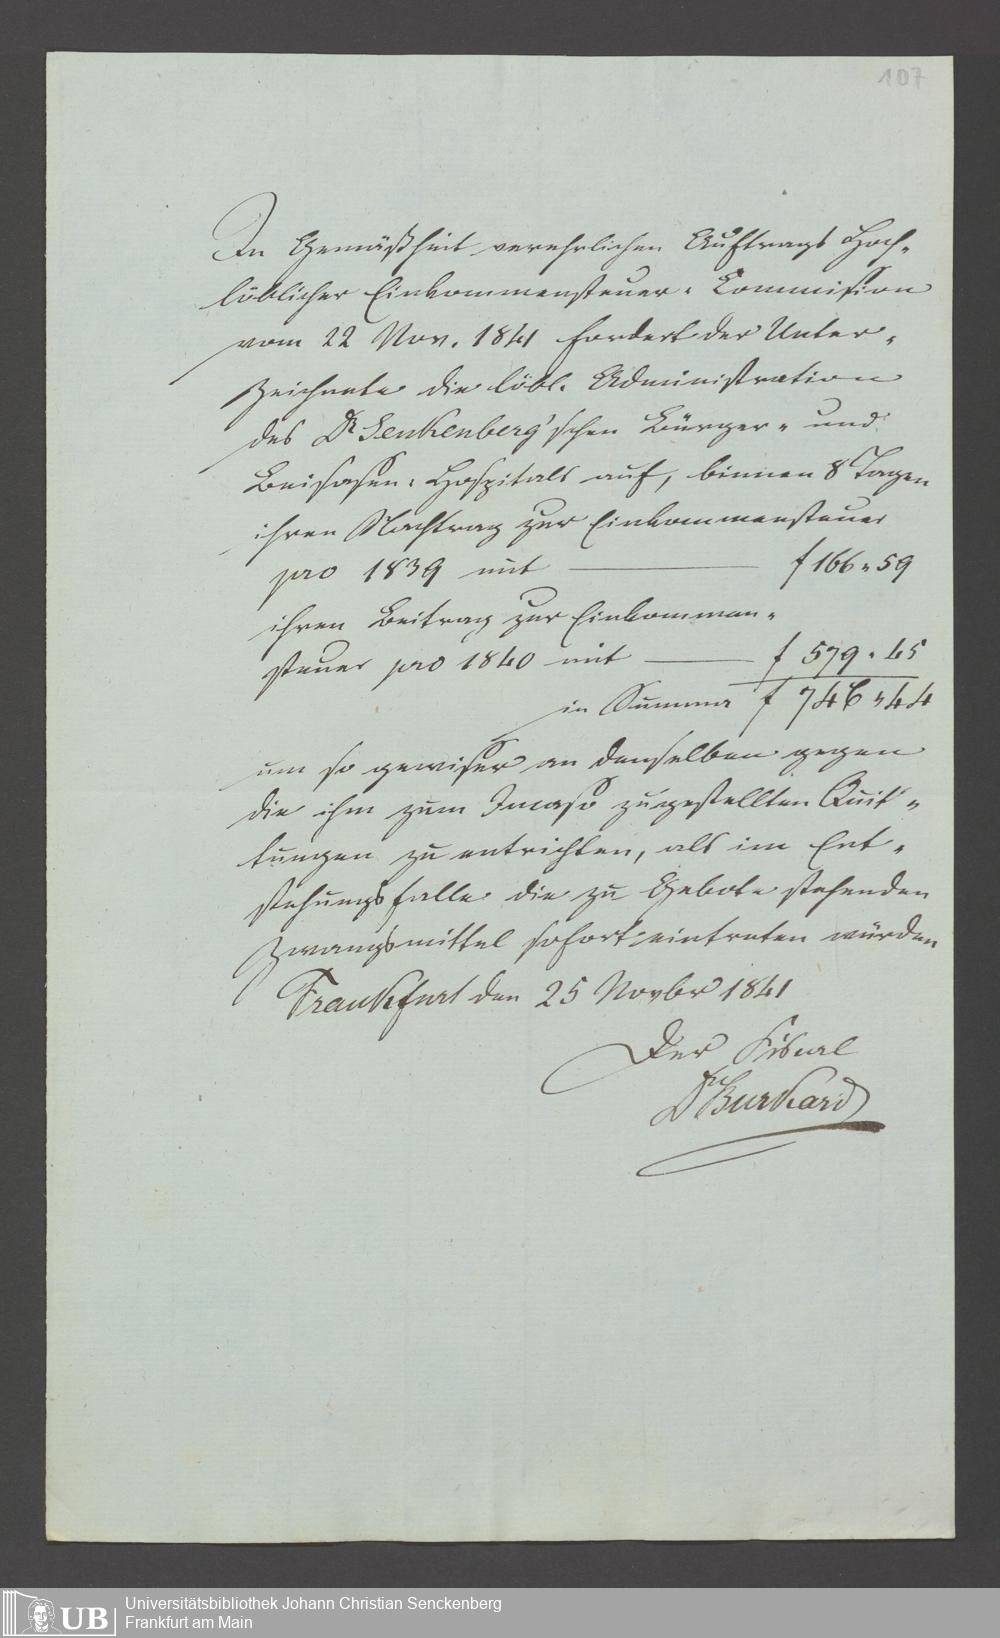 107
In Gemäßheit verehrlichen Auftrags Hoch-
löblicher Einkommensteuer-Commission
vom 22 Nov. 1841 fordert der Unter-
zeichnete die löbl. Administration
des Dr Senkenberg'schen Bürger- und
Beisassen-Hospitals auf, binnen 8 Tagen
ihren Nachtrag zur Einkommensteuer
pro 1839 mit — f 166 " 59
ihren Beitrag zur Einkommen-
steuer pro 1840 mit — f 579 " 45
in Summa f 746 " 44
um so gewisser an denselben gegen
die ihm zum Incasso zugestellten Quit-
tungen zu entrichten, als im Ent-
stehungsfalle die zu Gebote stehenden
Zwangsmittel sofort eintreten würden
Frankfurt den 25 Novbr 1841
Der Fiscal
Dr Burkard
UB Universitätsbibliothek Johann Christian Senckenberg
Frankfurt am Main